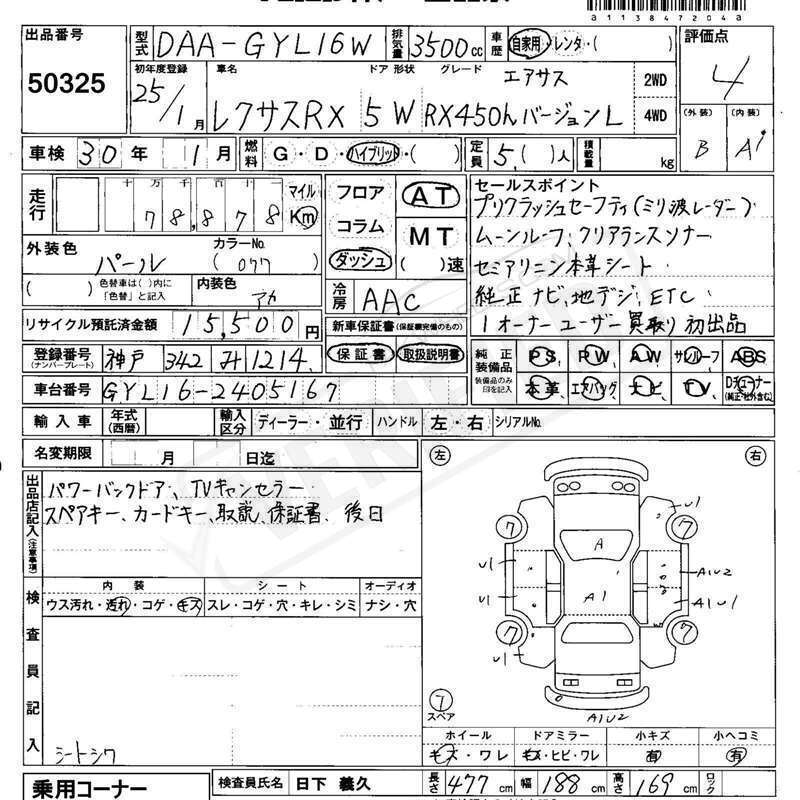 a1138472 04a
出品番号 50325
型式 DAA-GYL16W 排気量 3500cc 車歴 自家用・レンタ・( ) 評価点 4
初年度登録 25/1月 車名 レクサスRX ドア 形状 5 W グレード エアサス RX450hバージョンL 2WD 4WD
(外装) B (内装) A
車検 30年 1月 燃料 G・D・ハイブリット・( ) 定員 5,( )人 積載量 kg
走行 十 万 千 百 十 78,878 マイル Km
フロア コラム ダッシュ AT MT ( )速
セールスポイント
プリクラッシュセーフティ(ミリ波レーダー)
ムーンルーフ,クリアランスソナー
セミアリニン本革シート
純正ナビ,地デジ,ETC
1オーナーユーザー買取り 初出品
外装色 パール カラーNo. (077)
( ) 色替車は( )内に「色替」と記入 内装色 アカ
冷房 AAC
リサイクル預託済金額 15,500円
新車保証書(保証欄完備のもの)
保証書 取扱説明書
登録番号 (ナンバープレート) 神戸 342 み 1214
純正装備品 装備品のみ印を記入 PS PW AW サンルーフ ABS
本革 エアバッグ ナビ TV Dチューナー (純正・社外含む)
車台番号 GYL16-2405167
輸入車 年式(西暦) 輸入区分 ディーラー・並行 ハンドル 左・右 シリアルNo.
名変期限 月 日迄
出品店記入(注意事項)
パワーバックドア、TVキャンセラー
スペアキー、カードキー、取説、保証書、後日
左 右
7 7 7 7
U1 U1 U1 U1
A A1
A1U2
A1U1
A1U2
7 スペア
検査員記入
内装 シート オーディオ
ウス汚れ・汚れ・コゲ・キズ スレ・コゲ・穴・キレ・シミ ナシ・穴
シートシワ
ホイール ドアミラー 小キズ 小ヘコミ
キズ・ワレ キズ・ヒビ・ワレ 有 有
乗用コーナー
検査員氏名 日下 義久 長さ 477cm 幅 188cm 高さ 169cm ロック